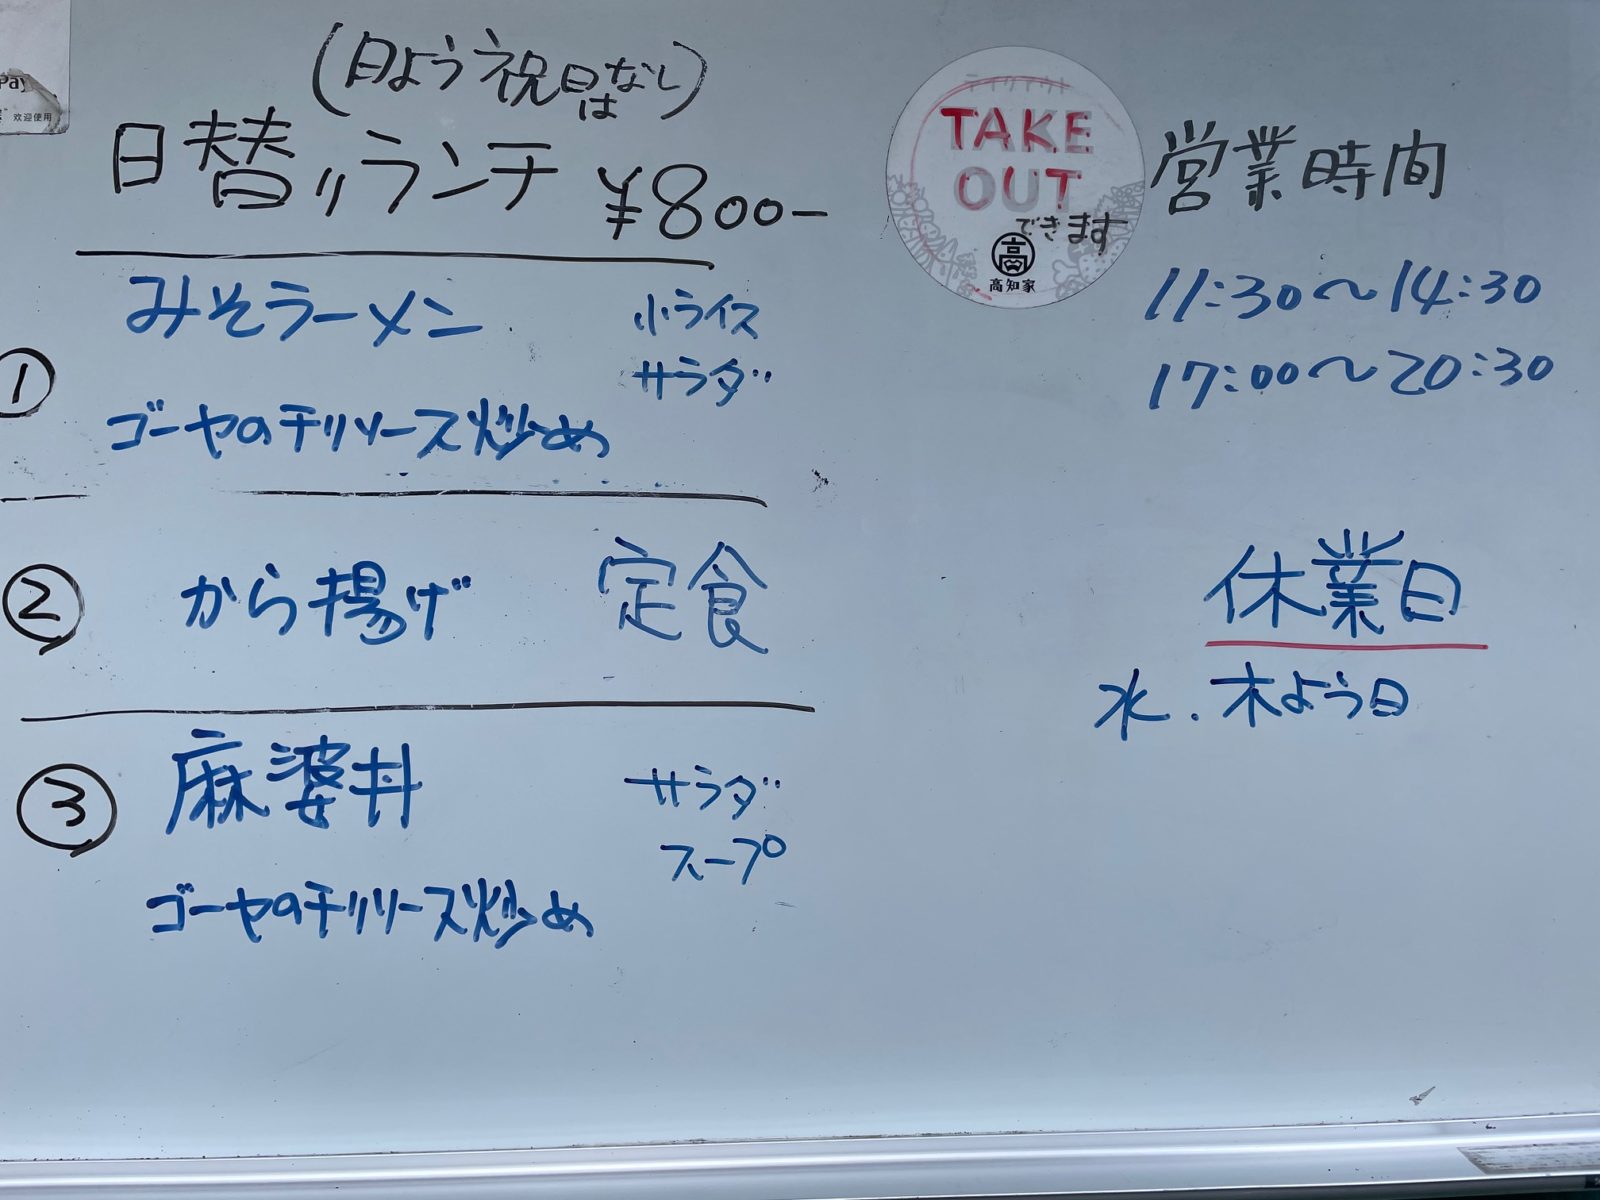 Pay
欢迎使用
(日よう祝日はなし)
日替りランチ ¥800-
①
みそラーメン
小ライス
サラダ
ゴーヤのチリソース炒め
②
から揚げ 定食
③
麻婆丼
サラダ
スープ
ゴーヤのチリソース炒め
TAKE
OUT
できます
高
高知家
営業時間
11:30〜14:30
17:00〜20:30
休業日
水.木よう日